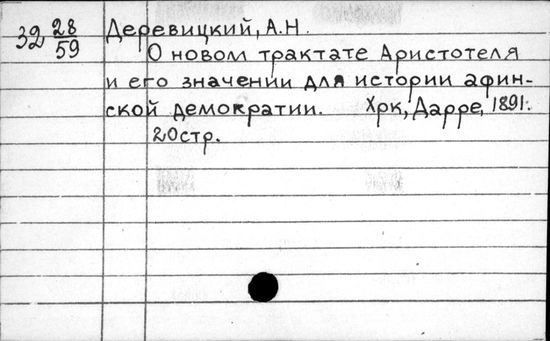 32 28/59 Деревицкий, А.Н.
О новом трактате Аристотеля
и его значении для истории афин-
ской демократии. Хрк, Дарре, 1891.
20стр.